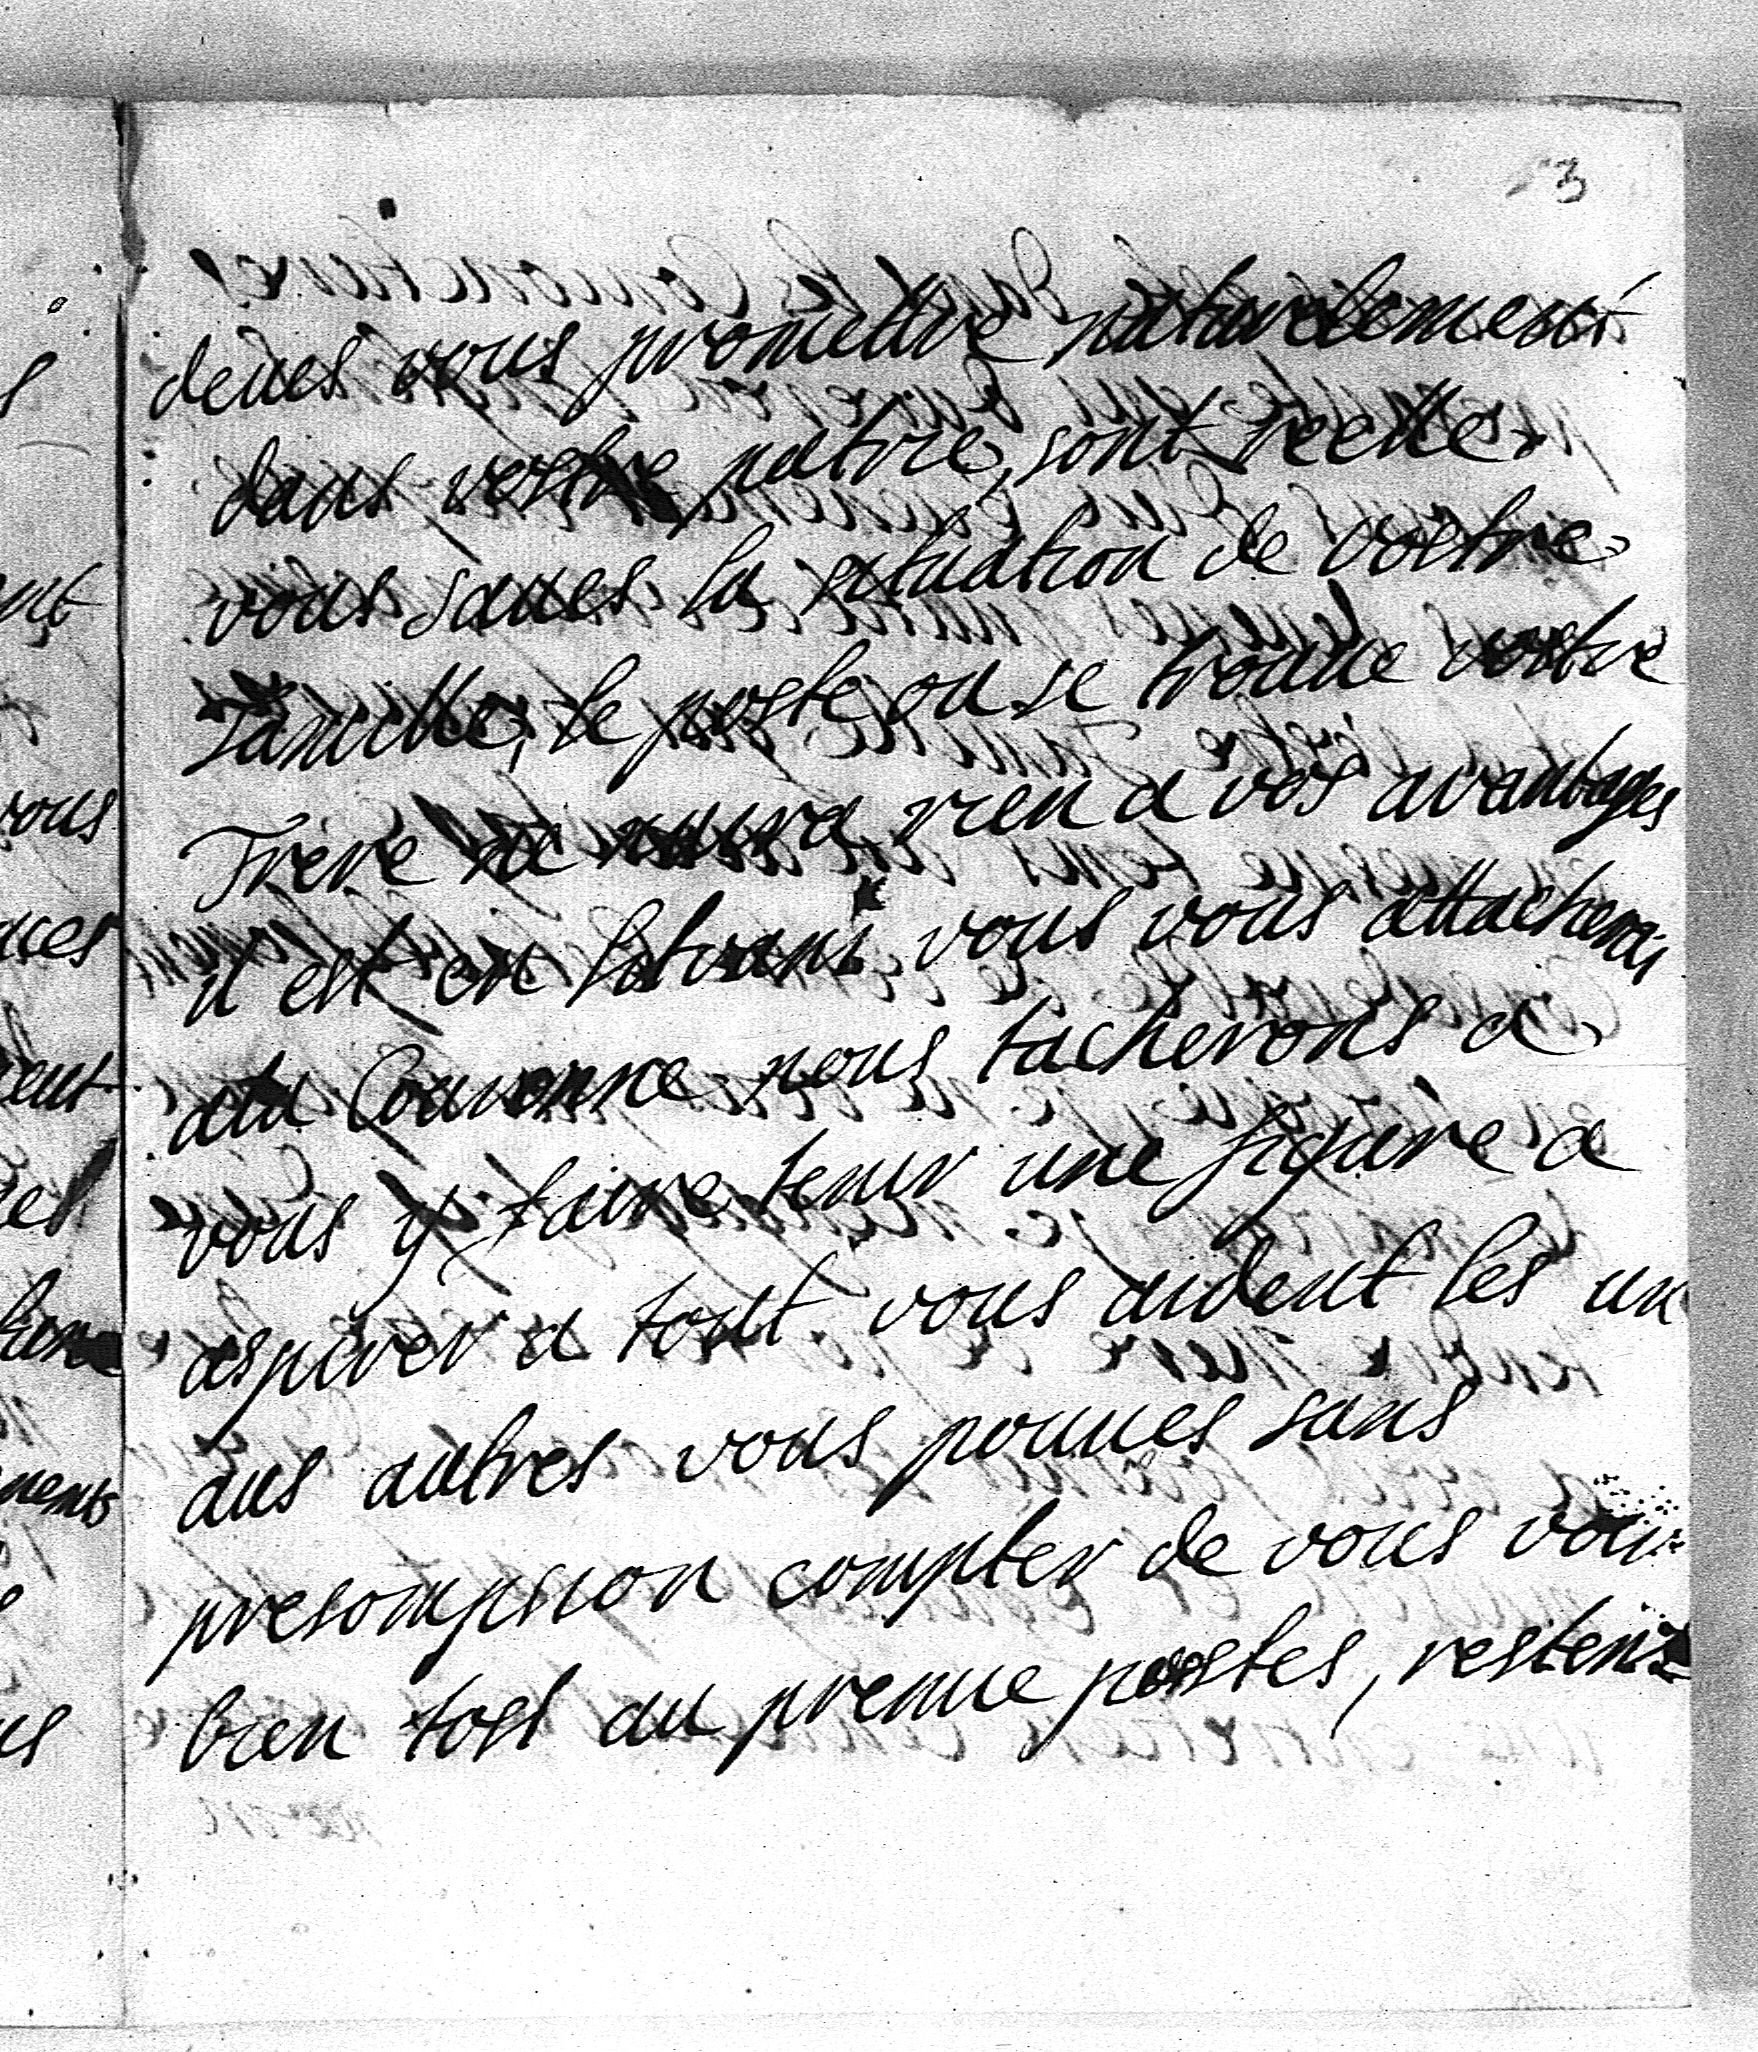 3
deues vous promettre naturelement
dans vostre patrie, sont reelle
vous saues la situation de vostre
famille, le poste ou se trouue vostre
Frere ne nuira rien a vos avantages
il est en Litvani vous vous attacherai
ala Couronne nous tacherons a
vous y faire tenir une figure a
aspirer a tout. vous aident les un
aus autres vous pouues sans
presompsion compter de vous voir
bien tost au premie postes, restenir